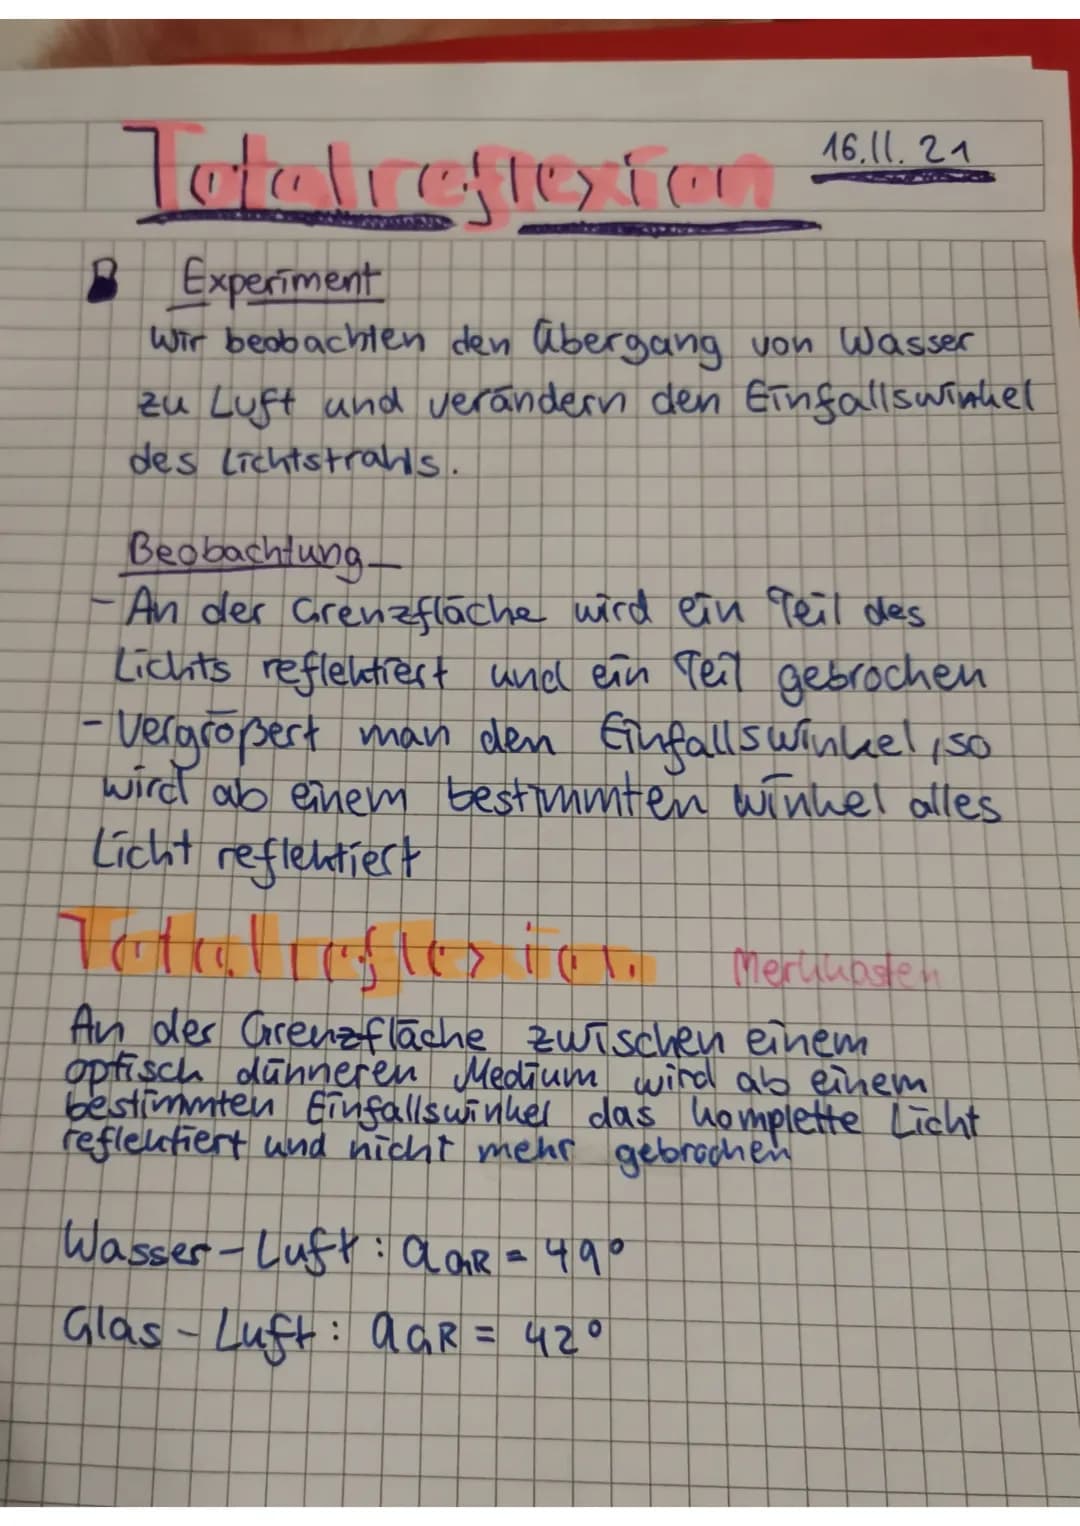 Totalreflexion 16.11.21
Experiment
Wir beobachten den Übergang von Wasser
zu Luft und verändern den Einfallswinkel
des Lichtstrahls.
Beobachtung
- An der Grenzfläche wird ein Teil des
Lichts reflektiert und ein Teil gebrochen
- Vergrößert man den Einfallswinkel, so
wird ab einem bestimmten Winkel alles
Licht reflektiert
Totalreflexion Merkkasten
An der Grenzfläche zwischen einem
optisch dünneren Medium wird ab einem
bestimmten Einfallswinkel das komplette Licht
reflektiert und nicht mehr gebrochen
Wasser - Luft : αGR = 49°
Glas - Luft : αGR = 42°